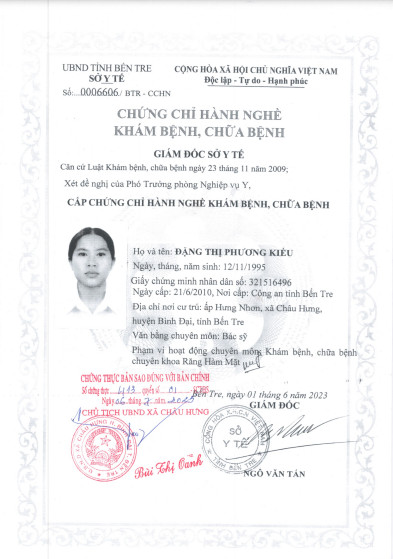 UBND TỈNH BẾN TRE
SỞ Y TẾ
Số:....0006606./ BTR - CCHN
CỘNG HÒA XÃ HỘI CHỦ NGHĨA VIỆT NAM
Độc lập - Tự do - Hạnh phúc
CHỨNG CHỈ HÀNH NGHỀ
KHÁM BỆNH, CHỮA BỆNH
GIÁM ĐỐC SỞ Y TẾ
Căn cứ Luật Khám bệnh, chữa bệnh ngày 23 tháng 11 năm 2009;
Xét đề nghị của Phó Trưởng phòng Nghiệp vụ Y,
CẤP CHỨNG CHỈ HÀNH NGHỀ KHÁM BỆNH, CHỮA BỆNH
Họ và tên: ĐẶNG THỊ PHƯƠNG KIỀU
Ngày, tháng, năm sinh: 12/11/1995
Giấy chứng minh nhân dân số: 321516496
Ngày cấp: 21/6/2010, Nơi cấp: Công an tỉnh Bến Tre
Địa chỉ nơi cư trú: ấp Hưng Nhơn, xã Châu Hưng,
huyện Bình Đại, tỉnh Bến Tre
Văn bằng chuyên môn: Bác sỹ
Phạm vi hoạt động chuyên môn: Khám bệnh, chữa bệnh
chuyên khoa Răng Hàm Mặt
CHỨNG THỰC BẢN SAO ĐÚNG VỚI BẢN CHÍNH
Số chứng thực: 413 quyển số 01
Ngày 06 tháng 7 năm 2023
CHỦ TỊCH UBND XÃ CHÂU HƯNG
Bến Tre, ngày 01 tháng 6 năm 2023
GIÁM ĐỐC
SỞ
Y TẾ
Bùi Thị Oanh
NGÔ VĂN TÁN